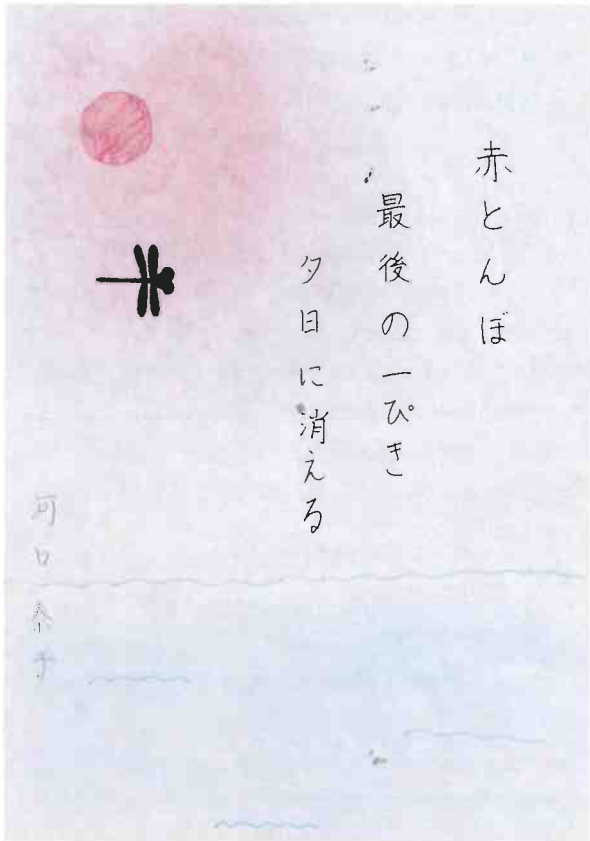 赤とんぼ
最後の一ぴき
夕日に消える